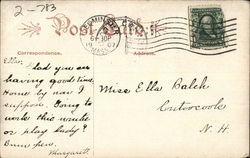 2-783
Post Card
Correspondence.
Address.
Ella,
Glad you are
having good time.
Home by now I
suppose. Going to
work this winter
or play lady?
Margaret
Miss Ella Balch
Contoocook
N. H